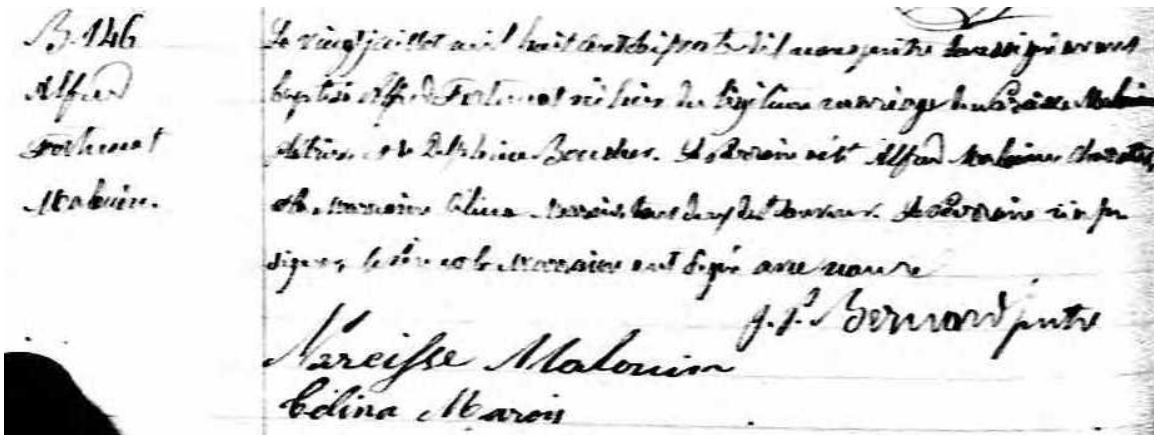 B. 146
Alfred
Fortunat
Malouin.
Le vingt juillet mil huit cent soussigné avons
baptisé Alfred Fortunat né hier du légitime mariage de Narcisse Malouin
plâtrier et de Delphine Boucher. Le Parrain a été Alfred Malouin
et la Marraine Célina Marois tous deux de St Sauveur. Le Parrain n'a pu
signer, le père et la Marraine ont signé avec nous
J. P. Bernard ptre
Narcisse Malouin
Célina Marois